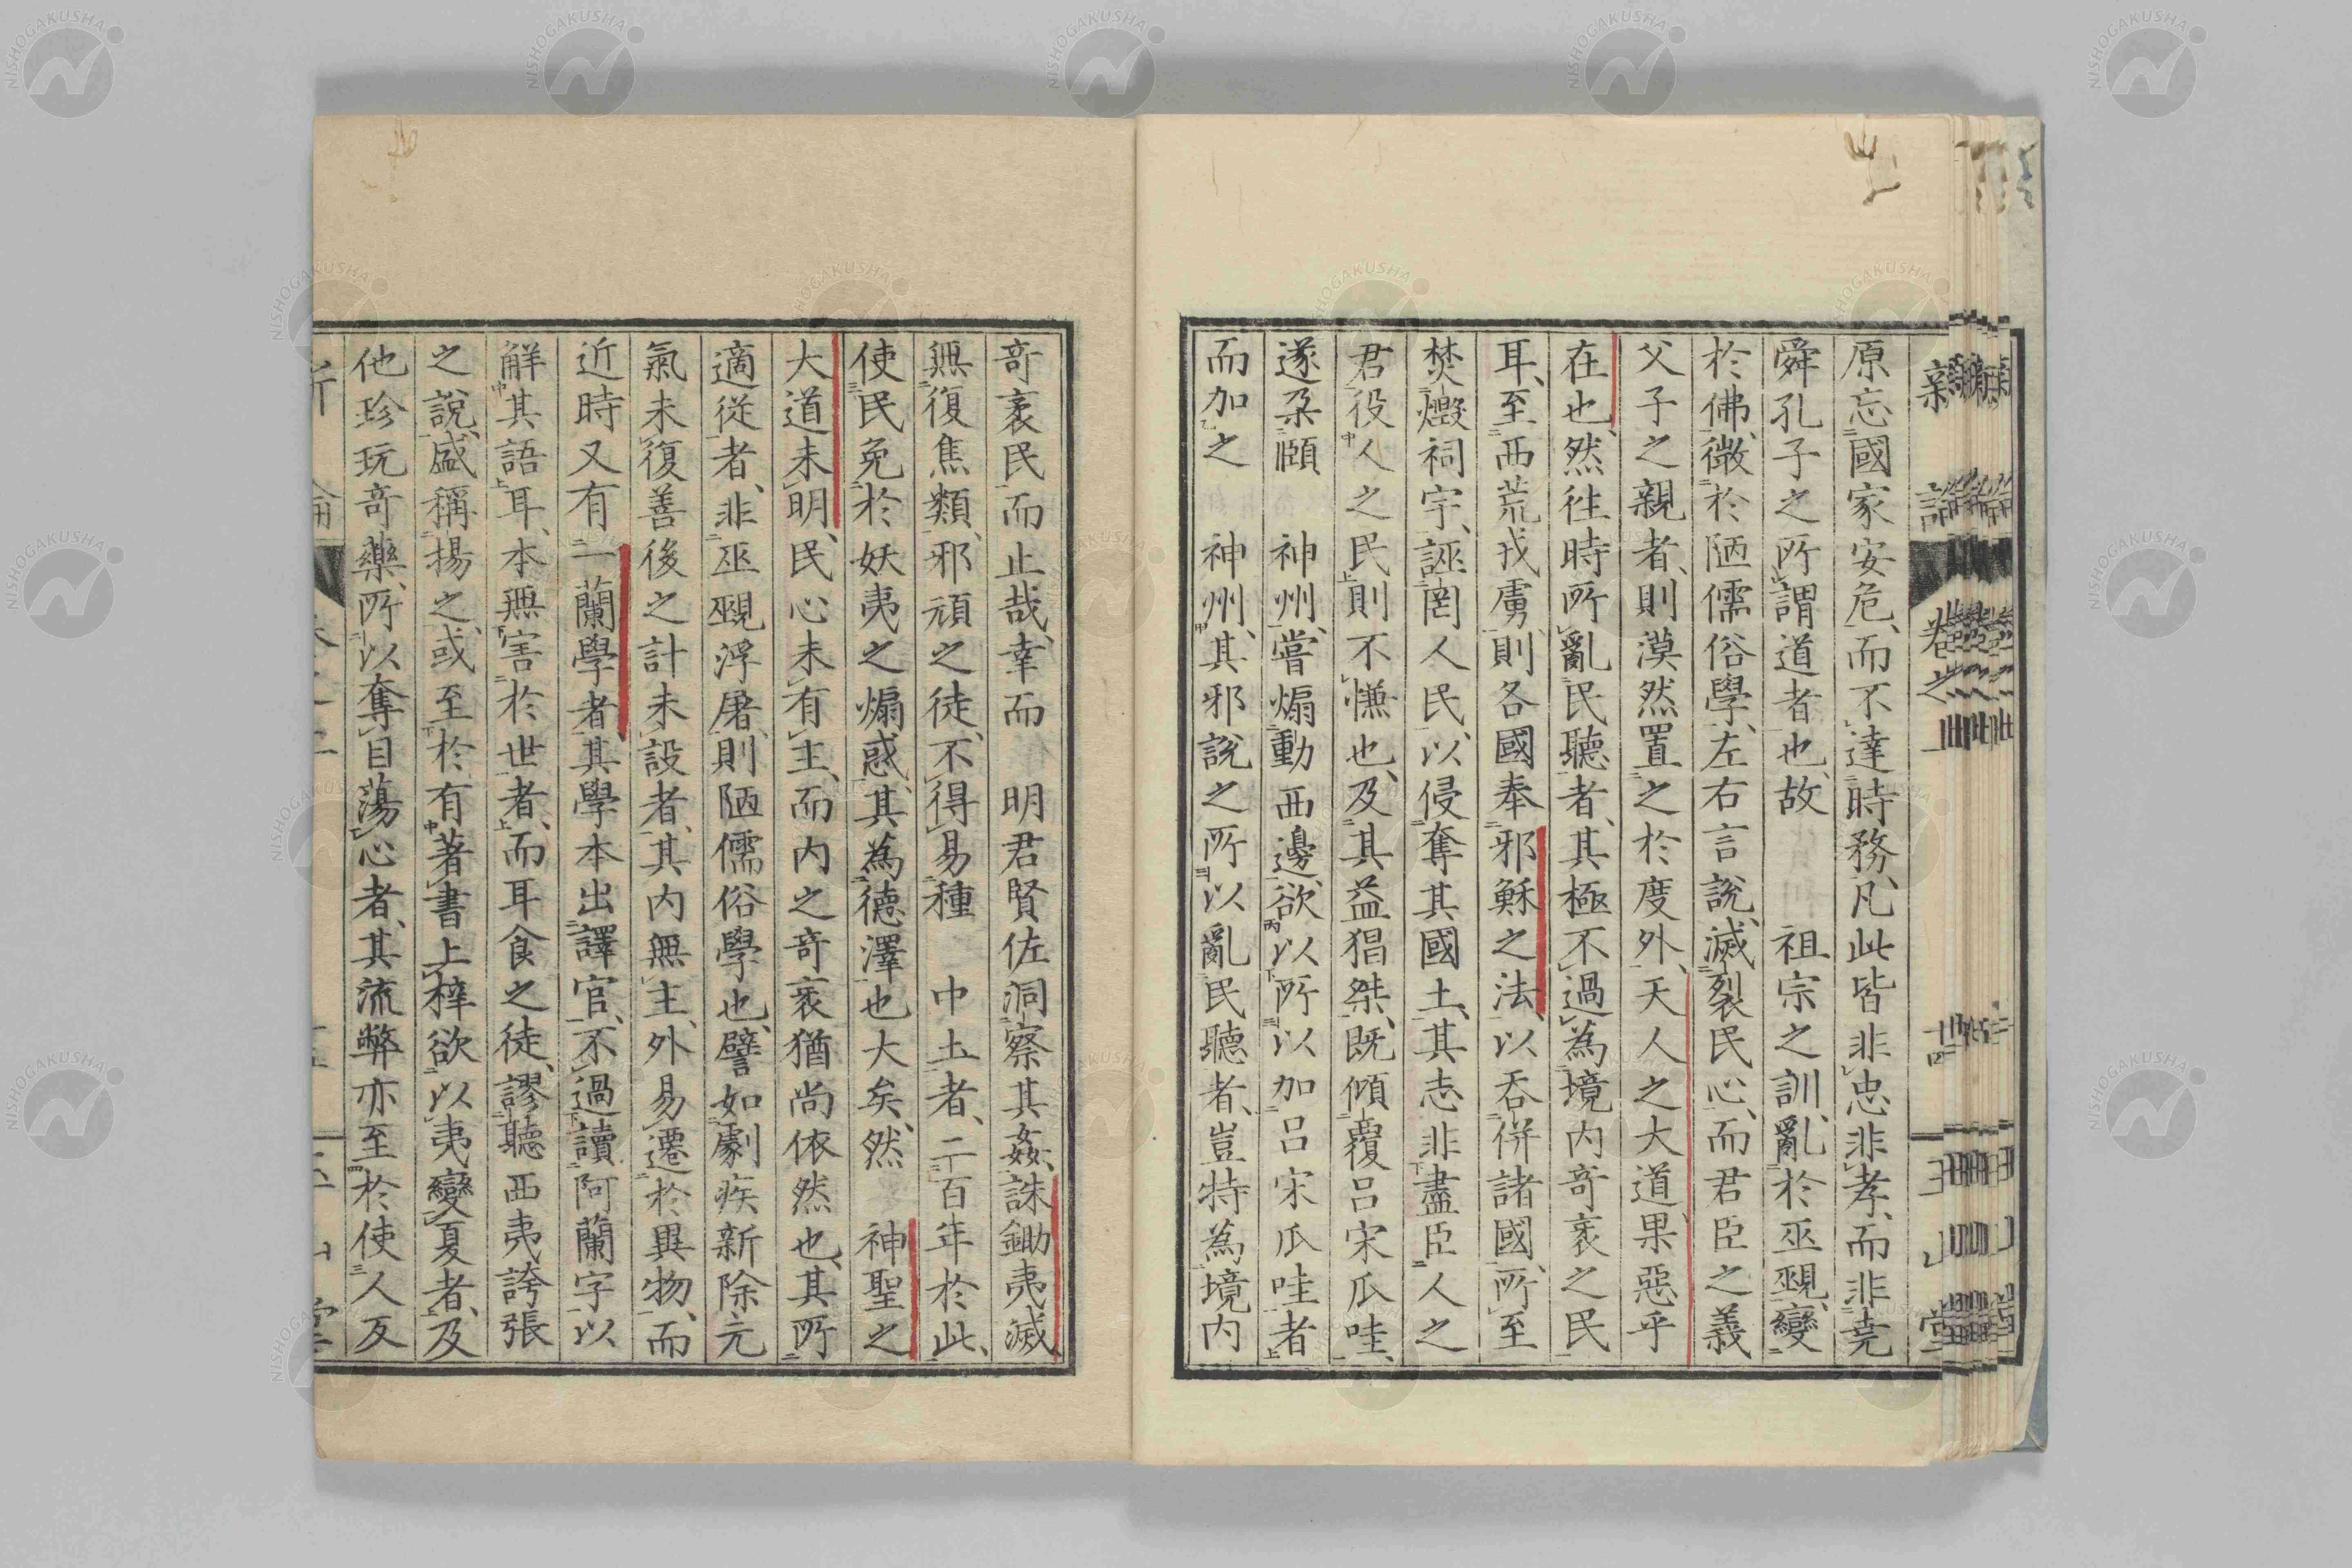 新論 卷之上 十四 玉山堂
原忘國家安危、而不達時務、凡此皆非忠非孝、而非堯
舜孔子之所謂道者也、故 祖宗之訓、亂於巫覡、變
於佛、微於陋儒俗學、左右言說、滅裂民心、而君臣之義
父子之親者、則漠然置之於度外、天人之大道果惡乎
在也、然往時所亂民聽者、其極不過為境內奇衺之民
耳、至西荒戎虜、則各國奉邪穌之法、以吞併諸國、所至
焚燬祠宇、誣罔人民、以侵奪其國土、其志非盡臣人之
君役人之民、則不慊也、及其益猖桀、既傾覆呂宋瓜哇、
遂朶頤 神州、嘗煽動西邊、欲以所以加呂宋瓜哇者
而加之 神州、其邪說之所以亂民聽者、豈特為境內
奇衺民而止哉、幸而 明君賢佐洞察其姦、誅鋤夷滅
無復焦類、邪頑之徒、不得易種 中土者、二百年於此、
使民免於妖夷之煽惑、其為德澤也大矣、然 神聖之
大道未明、民心未有主、而內之奇衺猶尚依然也、其所
適從者、非巫覡浮屠、則陋儒俗學也、譬如劇疾新除元
氣未復善後之計未設者、其內無主、外易遷於異物、而
近時又有一蘭學者、其學本出譯官、不過讀阿蘭字以
解其語耳、本無害於世者、而耳食之徒、謬聽西夷誇張
之說、盛稱揚之、或至於有著書上梓、欲以夷變夏者、及
他珍玩奇藥、所以奪目蕩心者、其流弊亦至於使人反